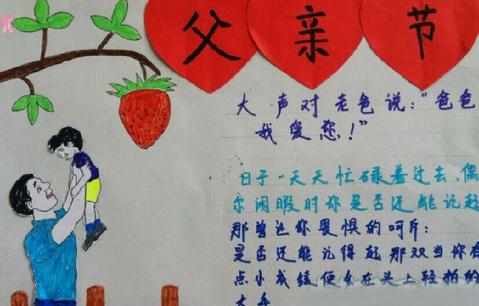 父亲节
大声对老爸说："爸爸
我爱您！"
日子一天天忙碌着过去，偶
尔闲暇时你是否还能记起
那曾让你畏惧的呵斥；
是否还能记得起那双当你有
点小成绩便会在头上轻拍的
大手